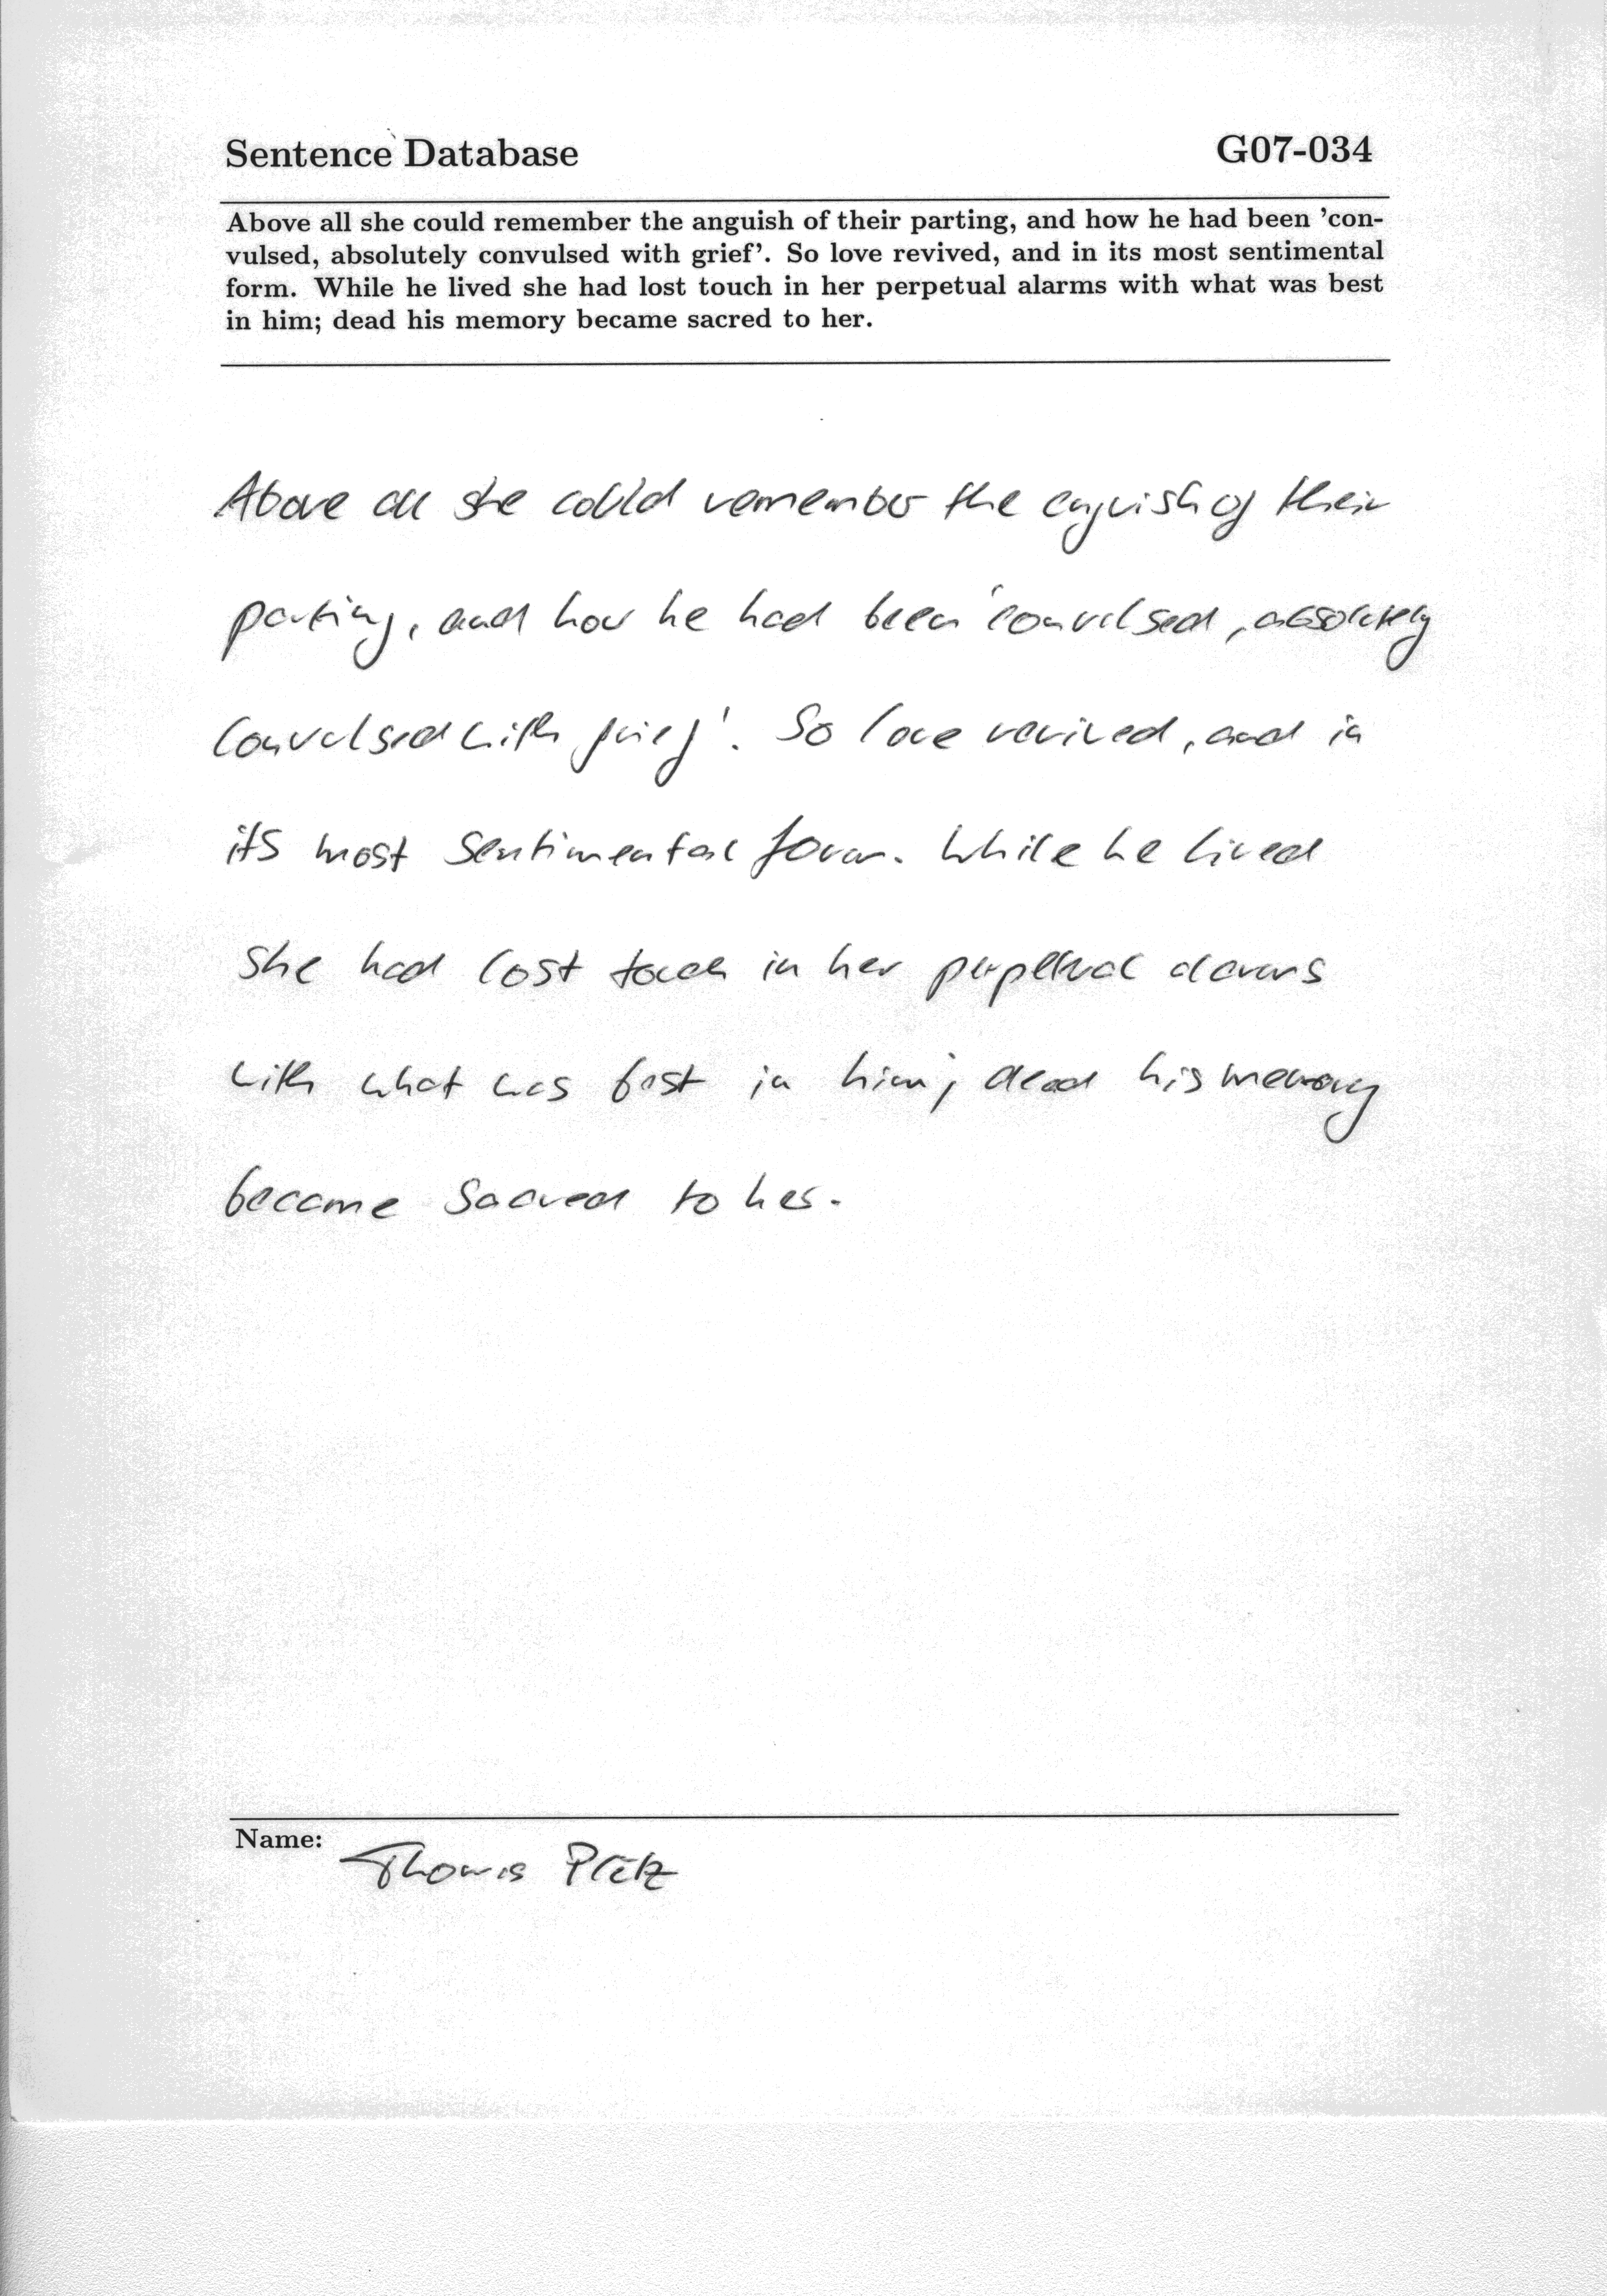 Sentence Database G07-034
Above all she could remember the anguish of their parting, and how he had been 'con-
vulsed, absolutely convulsed with grief'. So love revived, and in its most sentimental
form. While he lived she had lost touch in her perpetual alarms with what was best
in him; dead his memory became sacred to her.
Above all she could remember the anguish of their
parting, and how he had been 'convulsed, absolutely
convulsed with grief'. So love revived, and in
its most sentimental form. While he lived
she had lost touch in her perpetual alarms
with what was best in him; dead his memory
became sacred to her.
Name:
Thomas Plötz